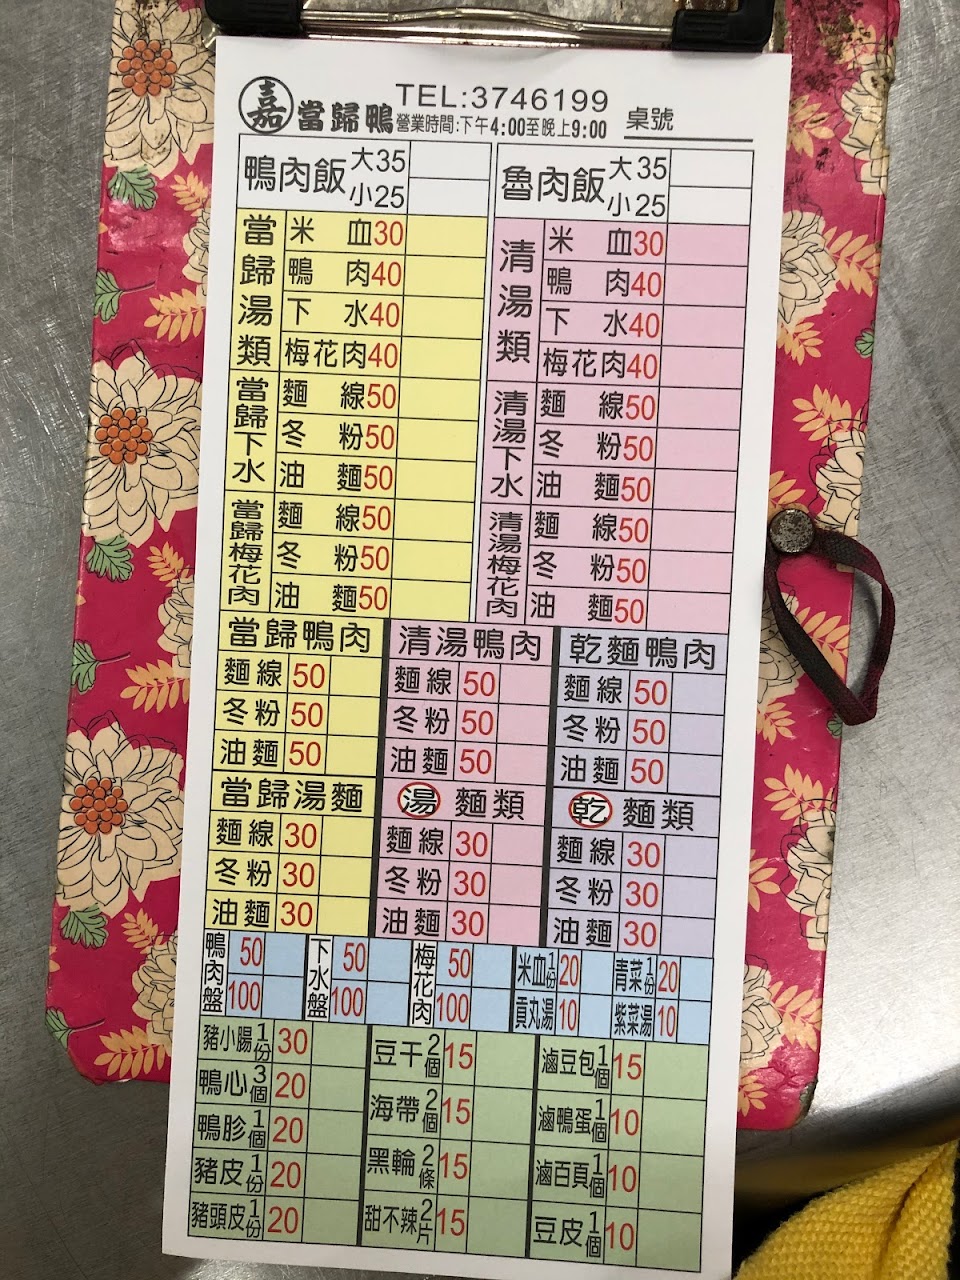 嘉 當歸鴨 TEL:3746199
營業時間:下午4:00至晚上9:00 桌號
鴨肉飯 大35 小25
魯肉飯 大35 小25
當歸湯類
米血30
鴨肉40
下水40
梅花肉40
當歸下水
麵線50
冬粉50
油麵50
當歸梅花肉
麵線50
冬粉50
油麵50
清湯類
米血30
鴨肉40
下水40
梅花肉40
清湯下水
麵線50
冬粉50
油麵50
清湯梅花肉
麵線50
冬粉50
油麵50
當歸鴨肉
麵線 50
冬粉 50
油麵 50
清湯鴨肉
麵線 50
冬粉 50
油麵 50
乾麵鴨肉
麵線 50
冬粉 50
油麵 50
當歸湯麵
麵線 30
冬粉 30
油麵 30
湯 麵類
麵線 30
冬粉 30
油麵 30
乾 麵類
麵線 30
冬粉 30
油麵 30
鴨肉盤 50 100
下水盤 50 100
梅花肉 50 100
米血1份 20
青菜1份 20
貢丸湯 10
紫菜湯 10
豬小腸1份 30
鴨心3個 20
鴨胗1個 20
豬皮1份 20
豬頭皮1份 20
豆干2個 15
海帶2個 15
黑輪2條 15
甜不辣2片 15
滷豆包1個 15
滷鴨蛋1個 10
滷百頁1個 10
豆皮1個 10